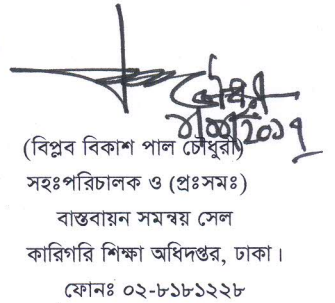 (বিপ্লব বিকাশ পাল চৌধুরী)
সহঃপরিচালক ও (প্রঃসমঃ)
বাস্তবায়ন সমন্বয় সেল
কারিগরি শিক্ষা অধিদপ্তর, ঢাকা।
ফোনঃ ০২-৮১৮১২২৮